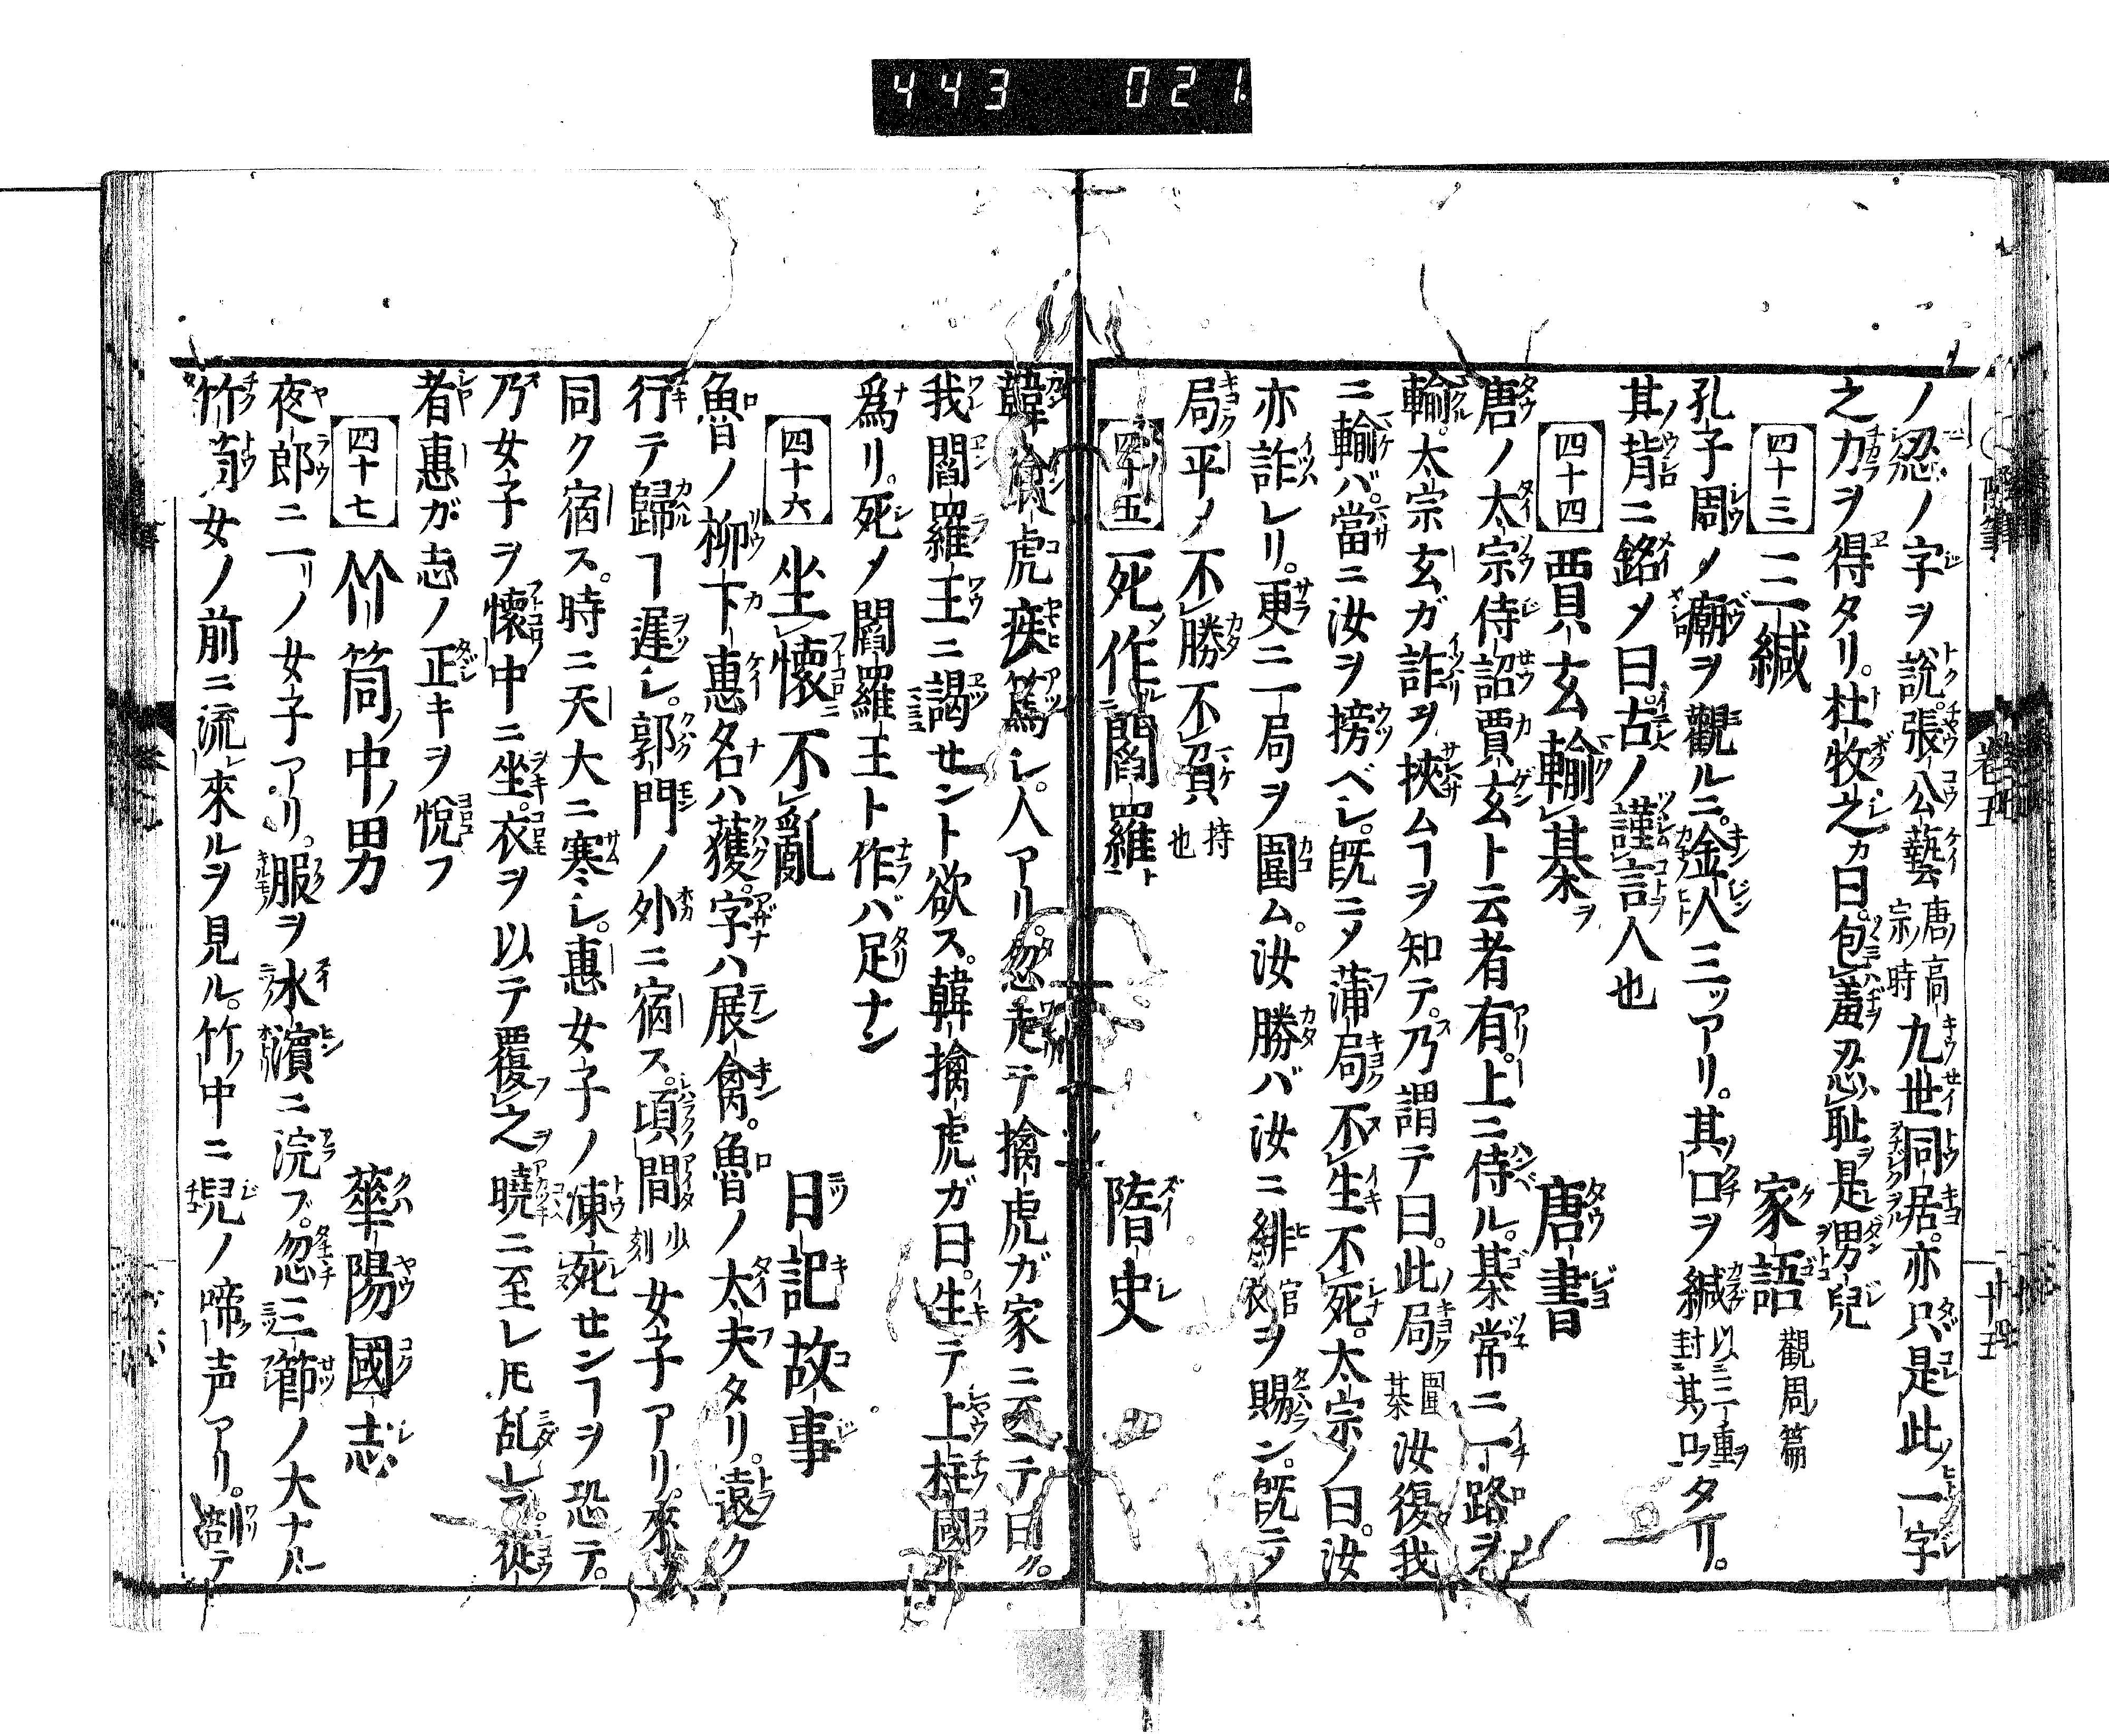 443 021.
ノ忍ノ字ヲ説。張公藝唐ノ高宗ノ時九世同居。亦只是此一字
之力ヲ得タリ。杜牧之カ曰。包羞忍恥是男兒
四十三 三緘 家語 觀周篇
孔子周ノ廟ヲ觀ルニ。金人三ツアリ。其口ヲ緘以三重ヲ封其ノ口ヲタリ。
其背ニ銘メ曰。古ノ謹言人也
四十四 賈玄輸棊ヲ 唐書
唐ノ太宗侍詔賈玄ト云者有。上ニ侍ル。棊常ニ一路ヲ
輸。太宗玄ガ詐ヲ挾ムヿヲ知テ。乃謂テ曰。此局圍棊汝復我
ニ輸バ。當ニ汝ヲ搒ベレ。既ニメ蒲局不生不死。太宗ノ曰。汝
亦詐レリ。更ニ一局ヲ圍ム。汝勝バ汝ニ緋官衣ヲ賜ン。既ニメ
局平メ不勝不負持也
四十五 死作閻羅ト 隋史
韓擒虎疾篤シ。人アリ。忽走テ擒虎ガ家ニ云テ曰ク。
我閻羅王ニ謁せント欲ス。韓擒虎ガ曰。生テ上柱國
爲リ。死メ閻羅王ト作バ足ナン
四十六 坐懷不亂 日記故事
魯ノ柳下惠名ハ獲。字ハ展禽。魯ノ太夫タリ。遠ク
行テ歸ヿ遲シ。郭門ノ外ニ宿ス。頃間少刻女子アリ。來
同ク宿ス。時ニ天大ニ寒シ。惠女子ノ凍死せンヿヲ恐テ。
乃女子ヲ懷中ニ坐。衣ヲ以テ覆之曉ニ至レ𪜈乱レ
者惠ガ志ノ正キヲ悅フ
四十七 竹筒ノ中ノ男 華陽國志
夜郎ニ一リノ女子アリ。服ヲ水濱ニ浣ブ。忽三節ノ大ナル
竹筒女ノ前ニ流來ルヲ見ル。竹中ニ兒ノ啼声アリ。割テ
卷五